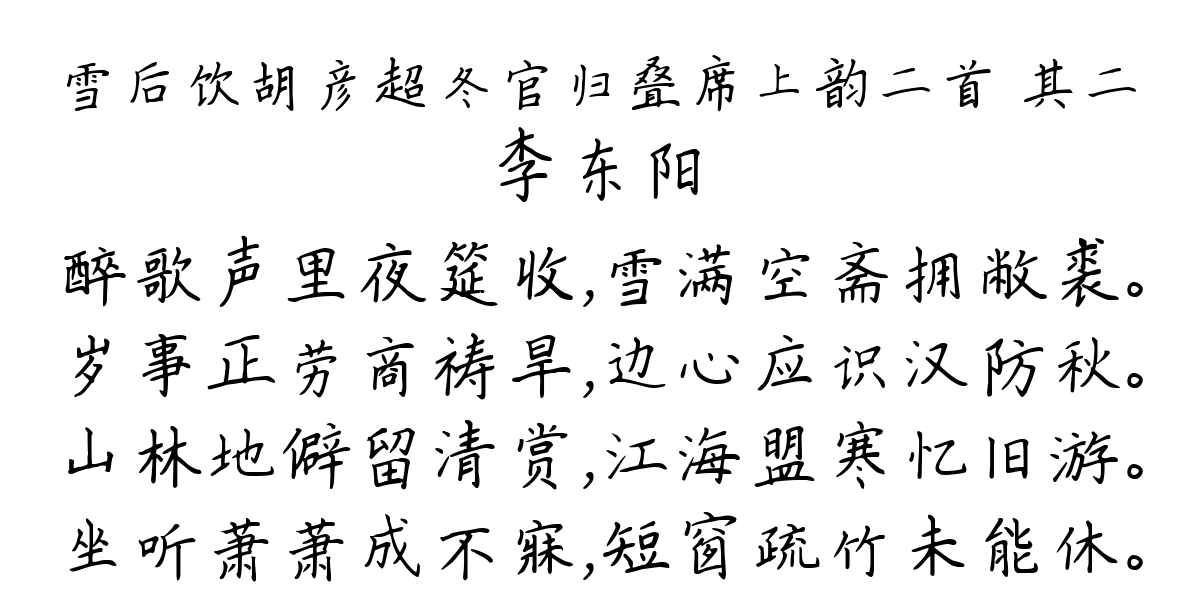 雪后饮胡彦超冬官归叠席上韵二首 其二
李东阳
醉歌声里夜筵收,雪满空斋拥敝裘。
岁事正劳商祷旱,边心应识汉防秋。
山林地僻留清赏,江海盟寒忆旧游。
坐听萧萧成不寐,短窗疏竹未能休。